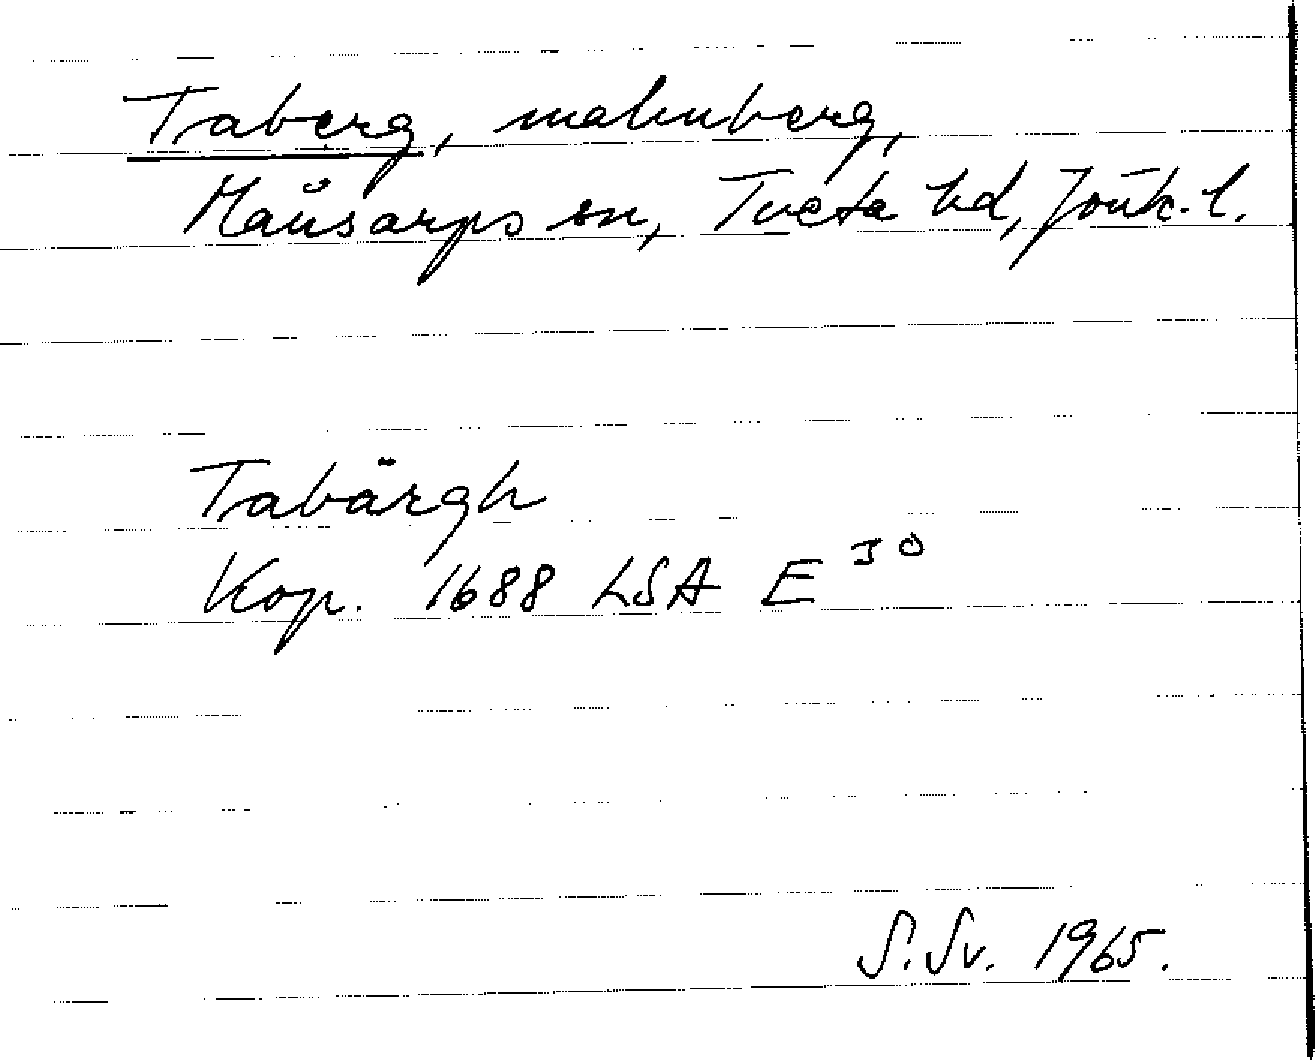 Taberg, malmberg,
Månsarps sn, Tveta hd, Jönk. l.
Tabärgh
Kop. 1688 LSA E 30
S. Sv. 1965.